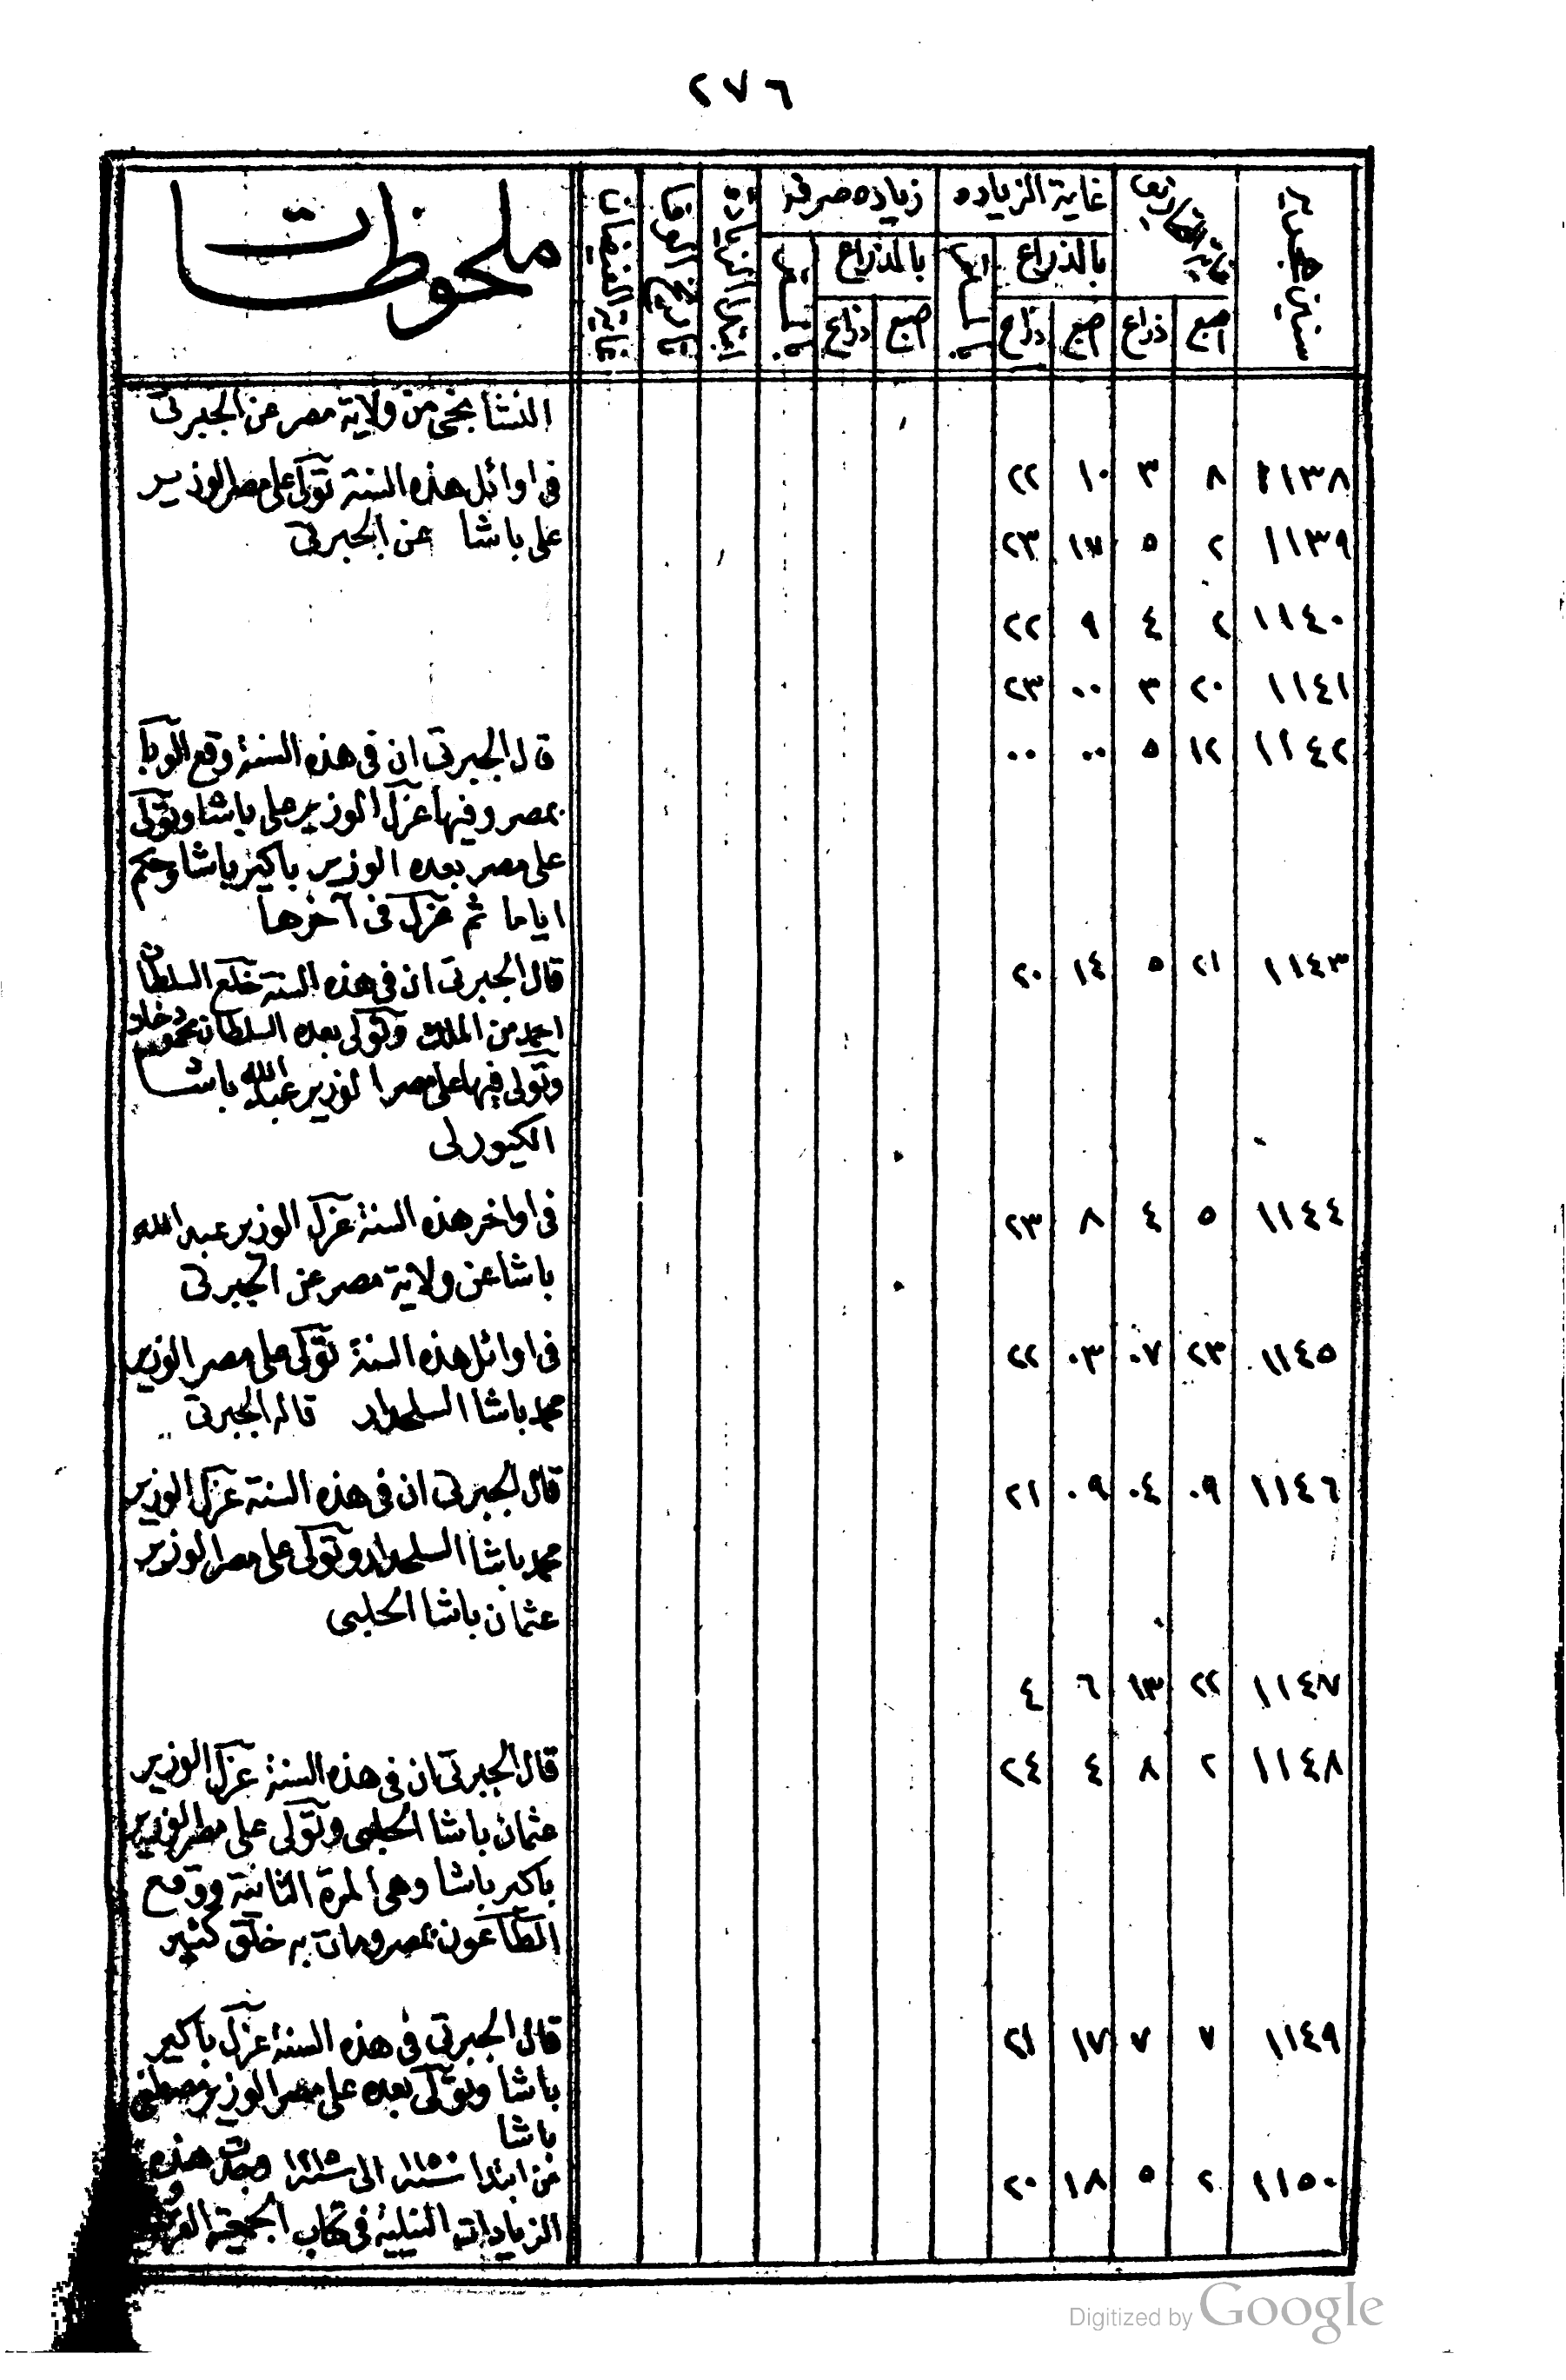 ٢٧٦
سنين هجريه
غاية التحاريق
غاية الزياده
زياده صرفه
ابتدا الزيادة
تاريخ الوفا
غاية الفيضان
ملحوظات
بالذراع
بالذراع
اصبع ذراع اصبع ذراع اصبع ذراع
النشانجى من ولاية مصر عن الجبرتى
١١٣٨ ٨ ٣ ١٠ ٢٢ فى اوائل هذه السنة تولى على مصر الوزير
على باشا عن الجبرتى
١١٣٩ ٢ ٥ ١٧ ٢٣
١١٤٠ ٢ ٤ ٩ ٢٢
١١٤١ ٢٠ ٣ ٠٠ ٢٣
١١٤٢ ١٢ ٥ ٠٠ ٠٠ قال الجبرتى ان فى هذه السنة وقع الوبا
بمصر وفيها عزل الوزير على باشا وتولى
على مصر بعده الوزير باكير باشا وحكم
اياما ثم عزل فى آخرها
١١٤٣ ٢١ ٥ ١٤ ٢٠ قال الجبرتى ان فى هذه السنة خلع السلطان
احمد من الملك وتولى بعده السلطان محمود خان
وتولى فيها على مصر الوزير عبد الله باشا
الكبورلى
١١٤٤ ٥ ٤ ٨ ٢٣ فى اواخر هذه السنة عزل الوزير عبد الله
باشا عن ولاية مصر عن الجبرتى
١١٤٥ ٢٣ ٠٧ ٠٣ ٢٢ فى اوائل هذه السنة تولى على مصر الوزير
محمد باشا السلحدار قاله الجبرتى
١١٤٦ ٠٩ ٠٤ ٠٩ ٢١ قال الجبرتى ان فى هذه السنة عزل الوزير
محمد باشا السلحدار وتولى على مصر الوزير
عثمان باشا الحلبى
١١٤٧ ٢٢ ١٣ ٦ ٤
١١٤٨ ٢ ٨ ٤ ٢٤ قال الجبرتى ان فى هذه السنة عزل الوزير
عثمان باشا الحلبى وتولى على مصر الوزير
باكير باشا وهى المرة الثانية ووقع
الطاعون بمصر ومات به خلق كثير
١١٤٩ ٧ ٧ ١٧ ٢١ قال الجبرتى فى هذه السنة عزل باكير
باشا وتولى بعده على مصر الوزير مصطفى
باشا
١١٥٠ ٢ ٥ ١٨ ٢٠ من ابتدا سنة ١١٥٠ الى سنة ١٢١٥ وجدت هذه
الزيادات النيلية فى كتاب الجمعية
Digitized by Google